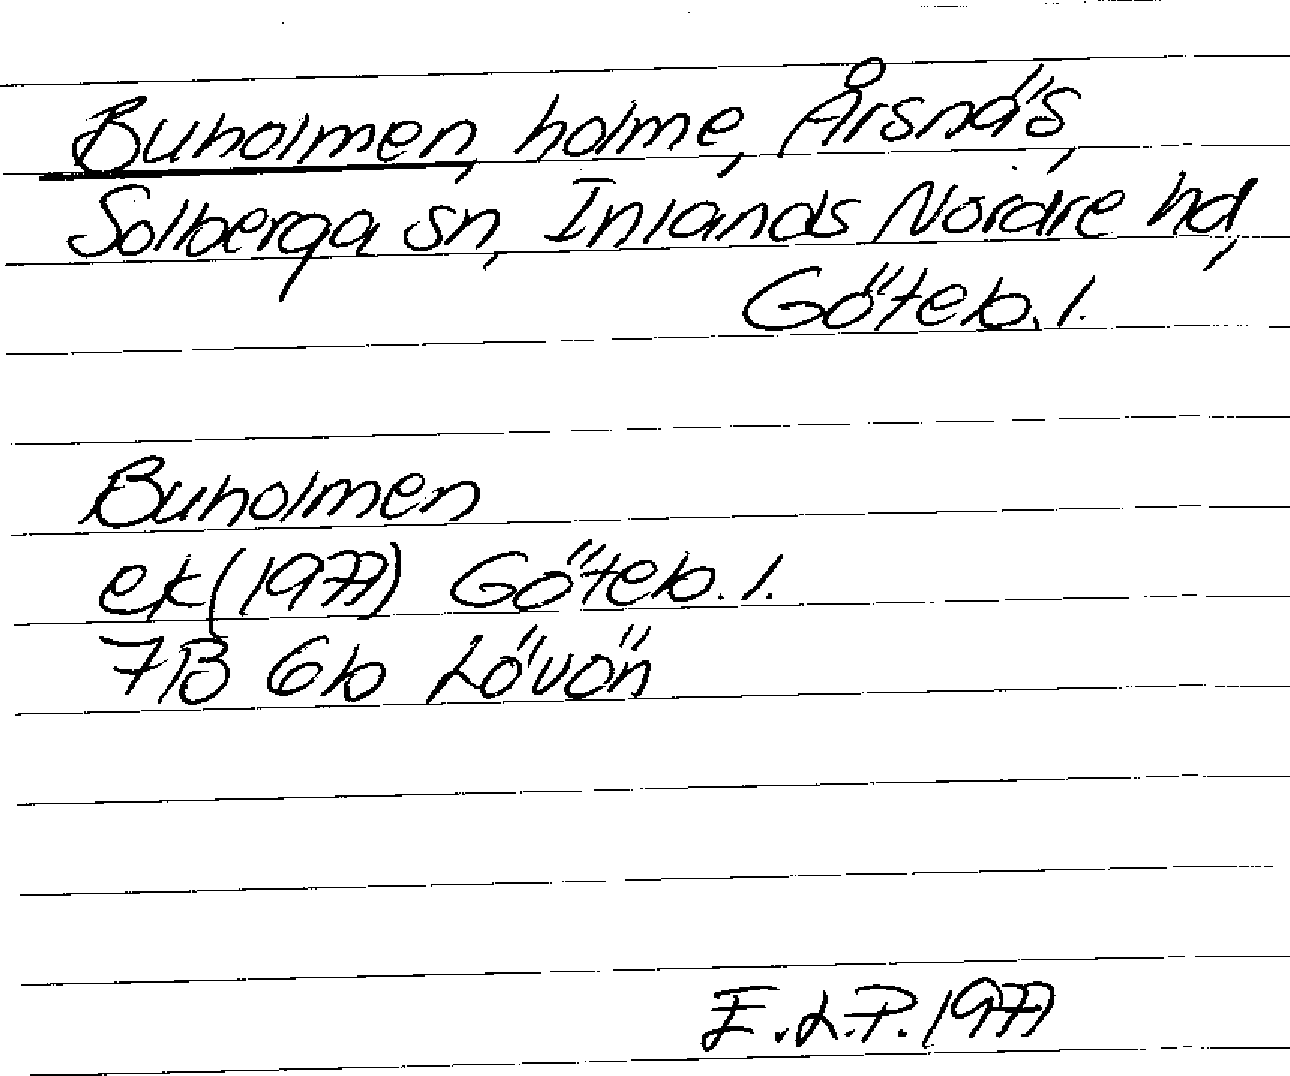 Buholmen, holme, Årsnäs,
Solberga sn, Inlands Nordre hd,
Göteb. l.
Buholmen
ek (1977) Göteb. l.
7B 6b Lövön
E.L.P. 1977